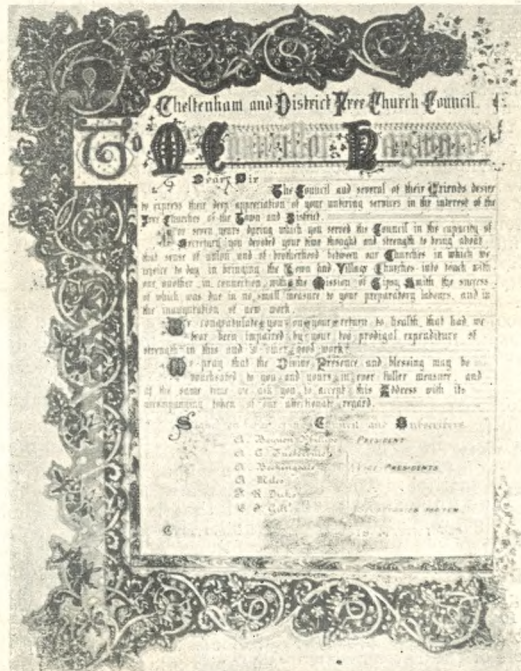 Cheltenham and District Free Church Council.
To
Councillor
Dear Sir
The Council and several of their Friends desire
to express their deep appreciation of your untiring services in the interest of the
Free Churches of the Town and District.
seven years during which you served the Council in the capacity of
Secretary you devoted your time thought and strength to bring about
that sense of union and of brotherhood between our Churches in which we
rejoice to day in bringing the Town and Village Churches into touch with
one another in connection with the Mission of Gipsy Smith the success
of which was due in no small measure to your preparatory labours, and in
the inauguration of new work.
We congratulate you on your return to health that had we
fear been impaired by your too prodigal expenditure of
strength in this and other good work
We pray that the Divine Presence and blessing may be
vouchsafed to you and yours in ever fuller measure, and
at the same time we ask you to accept this Address with its
accompanying token of our affectionate regard.
Council and Subscribers
PRESIDENT
VICE PRESIDENTS
A. Miles